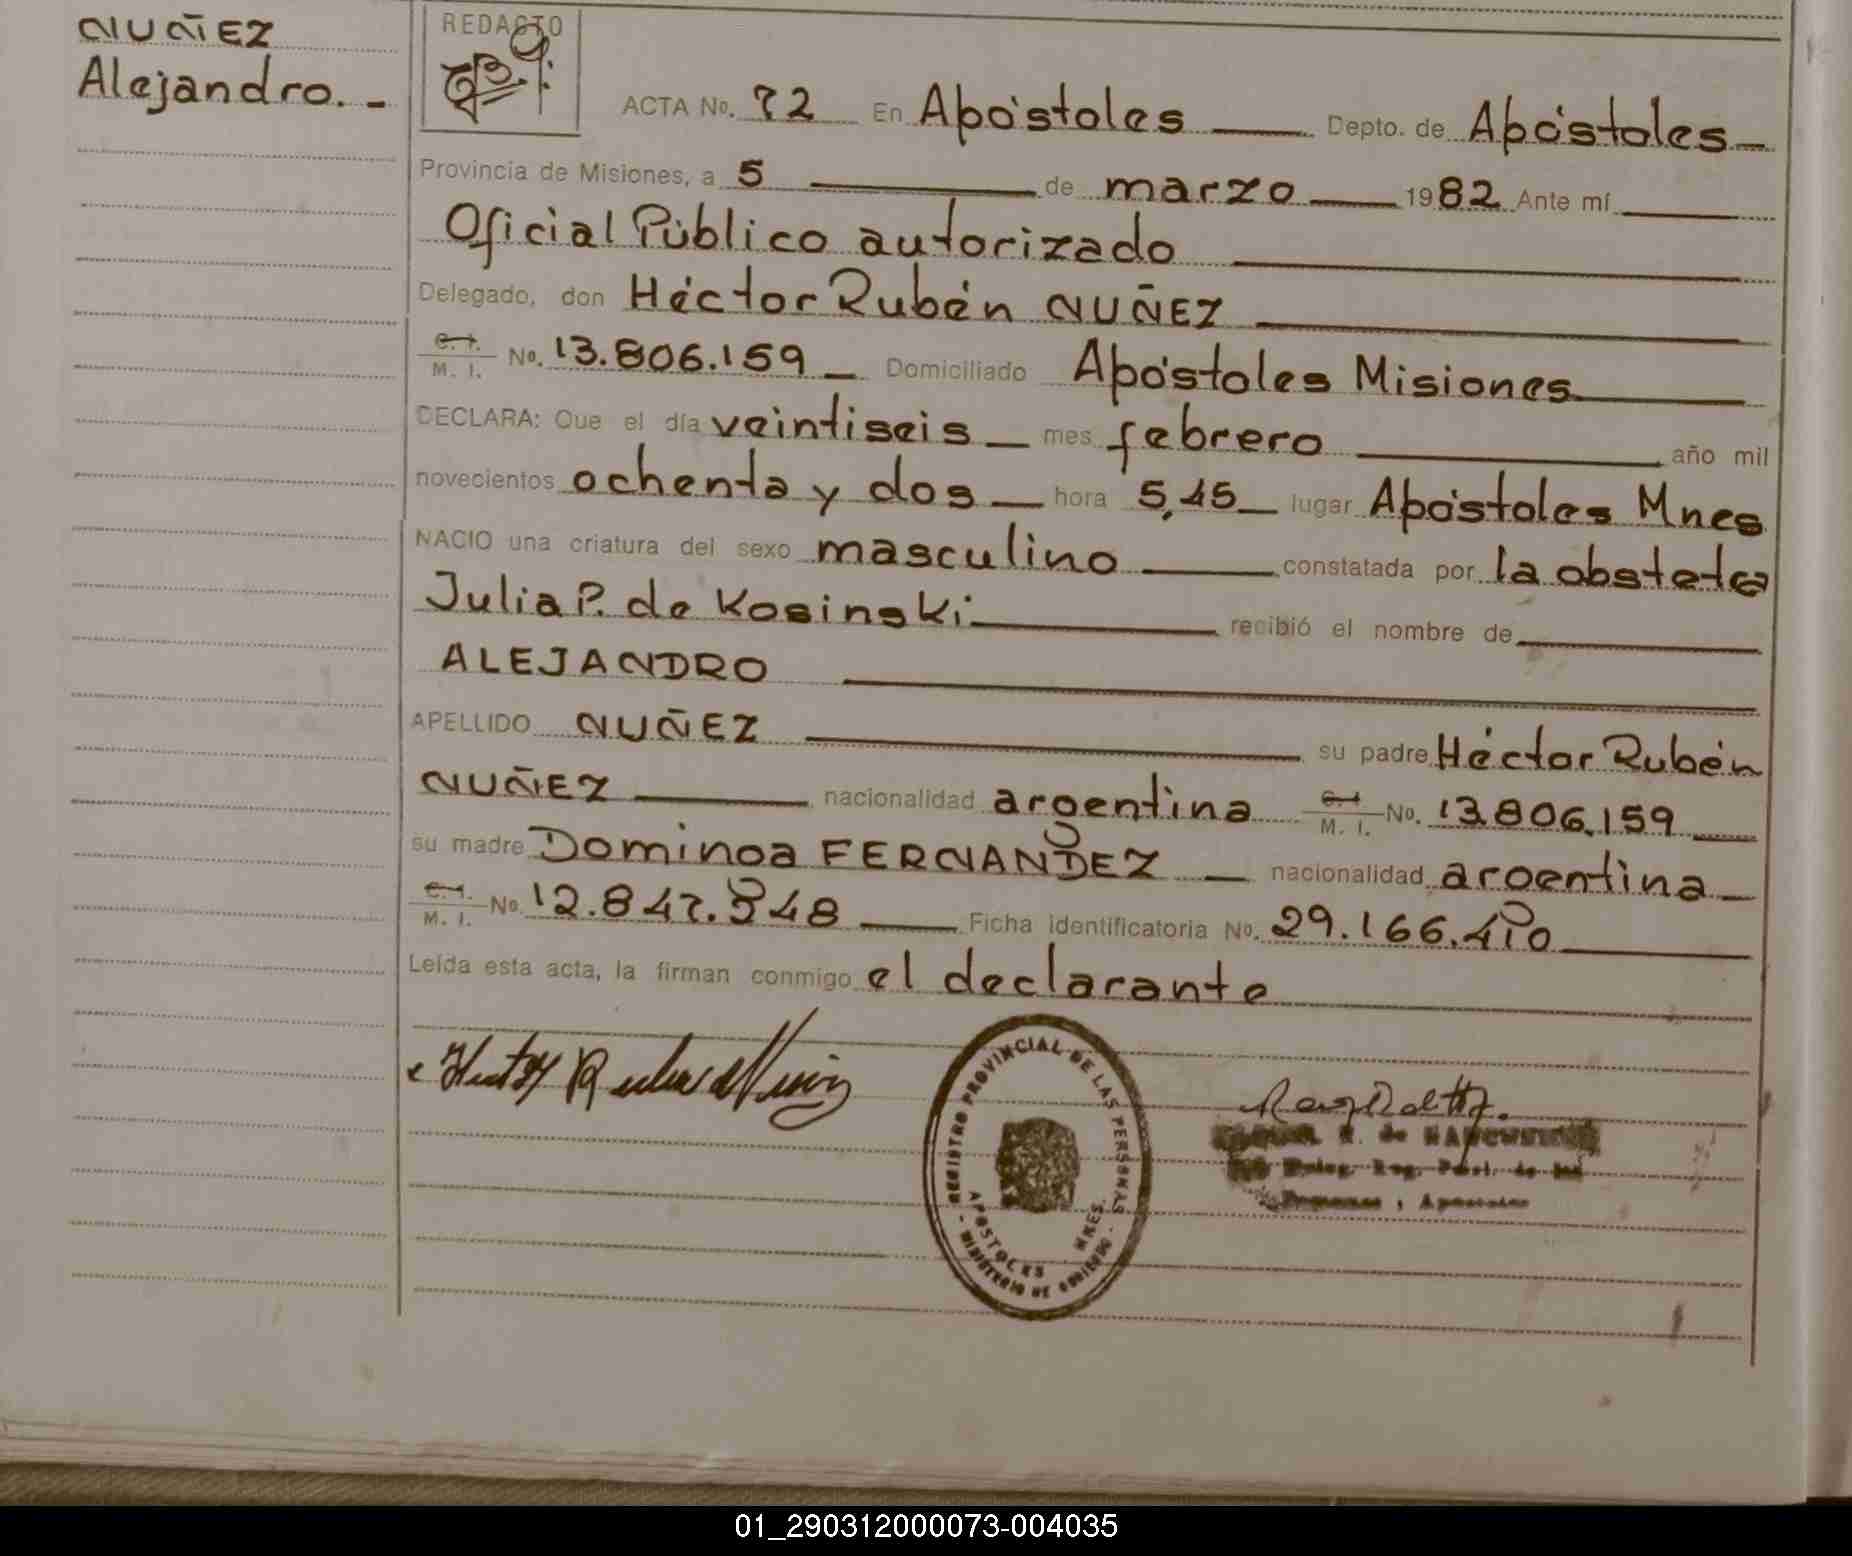 NUÑEZ
Alejandro. -
REDACTO
ACTA No. 72 En Apóstoles Depto. de Apóstoles
Provincia de Misiones, a 5 de marzo 1982 Ante mí
Oficial Público autorizado
Delegado, don Héctor Rubén NUÑEZ
C. I. M. I. No. 13.806.159 Domiciliado Apóstoles Misiones
DECLARA: Que el día veintiseis mes febrero año mil
novecientos ochenta y dos hora 5,45 lugar Apóstoles Mnes
NACIO una criatura del sexo masculino constatada por la obstetra
Julia P. de Kosinski recibió el nombre de
ALEJANDRO
APELLIDO NUÑEZ su padre Héctor Rubén
NUÑEZ nacionalidad argentina C. I. M. I. No. 13.806.159
su madre Dominga FERNANDEZ nacionalidad argentina
C. I. M. I. No. 12.847.348 Ficha identificatoria No.
Leída esta acta, la firman conmigo el declarante
REGISTRO PROVINCIAL DE LAS PERSONAS
APOSTOLES MNES.
- MINISTERIO DE GOBIERNO -
01_290312000073-004035